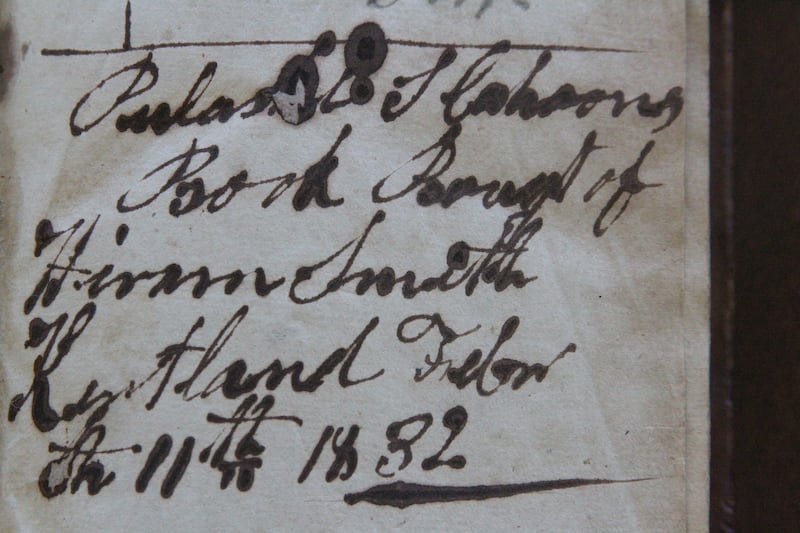 Pulaski S Cahoons
Book Bougt of
Hiram Smith
Kertland Febr
th 11th 1832